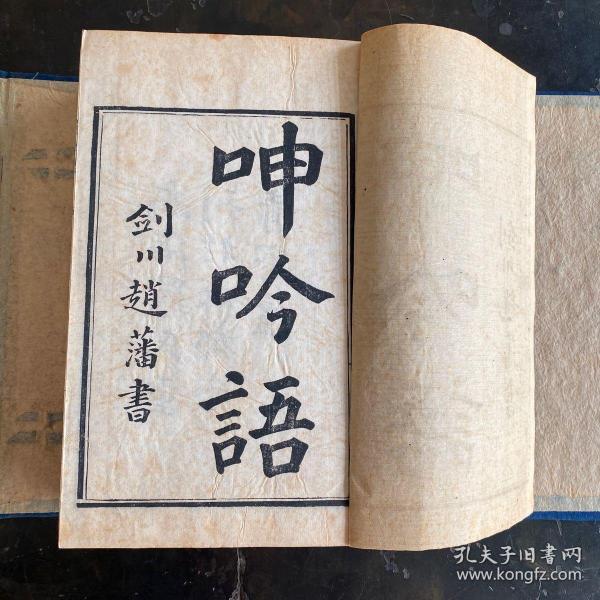 呻吟語
剑川趙藩書
孔夫子旧書网
www.kongfz.com